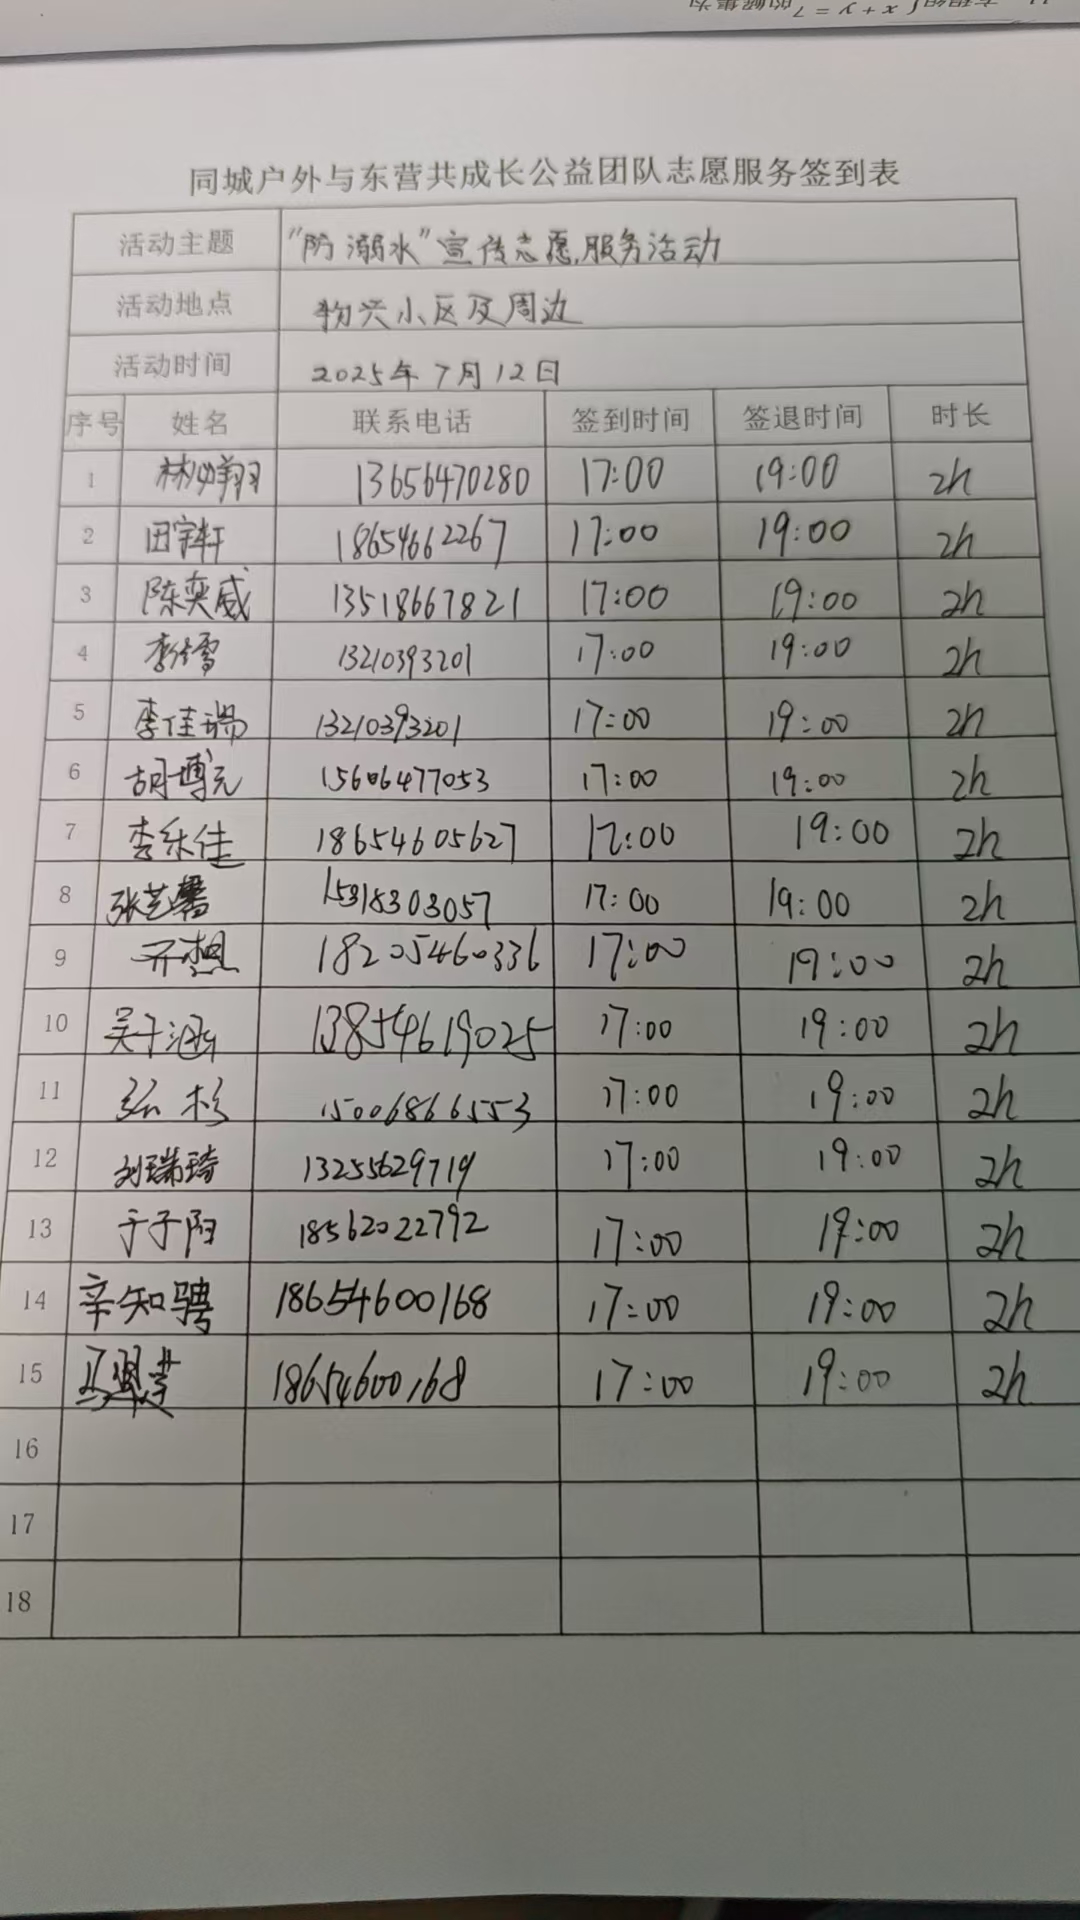 同城户外与东营共成长公益团队志愿服务签到表
活动主题 "防溺水"宣传志愿服务活动
活动地点 物兴小区及周边
活动时间 2025年7月12日
序号 姓名 联系电话 签到时间 签退时间 时长
1 13656470280 17:00 19:00 2h
2 田宇轩 18654662267 17:00 19:00 2h
3 陈奕威 13518667821 17:00 19:00 2h
4 13210393201 17:00 19:00 2h
5 李佳瑞 13210393201 17:00 19:00 2h
6 胡博元 15606477053 17:00 19:00 2h
7 李乐佳 18654605627 17:00 19:00 2h
8 张艺馨 15318303057 17:00 19:00 2h
9 18205460336 17:00 19:00 2h
10 吴于涵 13854619025 17:00 19:00 2h
11 15006866553 17:00 19:00 2h
12 刘瑞琦 13255629719 17:00 19:00 2h
13 于子阳 18562022792 17:00 19:00 2h
14 辛知骋 18654600168 17:00 19:00 2h
15 18654600168 17:00 19:00 2h
16
17
18